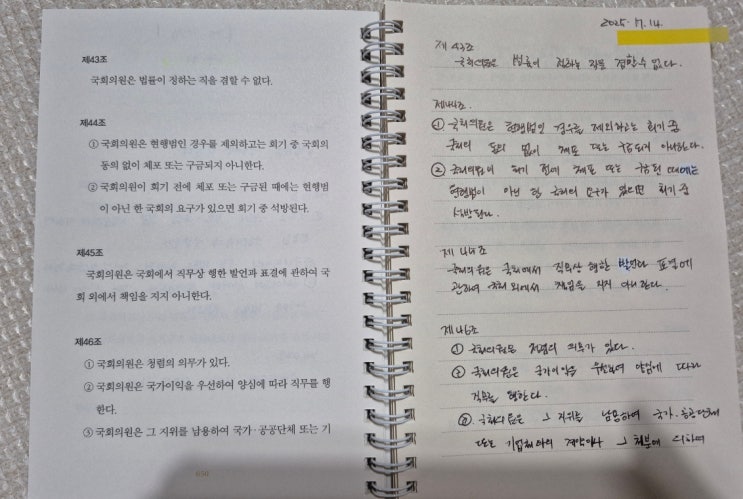 제43조
국회의원은 법률이 정하는 직을 겸할 수 없다.
제44조
① 국회의원은 현행범인 경우를 제외하고는 회기 중 국회의
동의 없이 체포 또는 구금되지 아니한다.
② 국회의원이 회기 전에 체포 또는 구금된 때에는 현행범
이 아닌 한 국회의 요구가 있으면 회기 중 석방된다.
제45조
국회의원은 국회에서 직무상 행한 발언과 표결에 관하여 국
회 외에서 책임을 지지 아니한다.
제46조
① 국회의원은 청렴의 의무가 있다.
② 국회의원은 국가이익을 우선하여 양심에 따라 직무를 행
한다.
③ 국회의원은 그 지위를 남용하여 국가·공공단체 또는 기
050
2025. 7. 14
제 43조
국회의원은 법률이 정하는 직을 겸할 수 없다.
제44조.
① 국회의원은 현행범인 경우를 제외하고는 회기 중
국회의 동의 없이 체포 또는 구금되지 아니한다.
② 국회의원이 회기 전에 체포 또는 구금된 때에는
현행범이 아닌 한 국회의 요구가 있으면 회기 중
석방된다.
제 44조
국회의원은 국회에서 직무상 행한 발언과 표결에
관하여 국회 외에서 책임을 지지 아니한다.
제46조
① 국회의원은 청렴의 의무가 있다.
② 국회의원은 국가이익을 우선하여 양심에 따라
직무를 행한다.
③ 국회의원은 그 지위를 남용하여 국가·공공단체
또는 기업체와의 계약이나 그 처분에 의하여